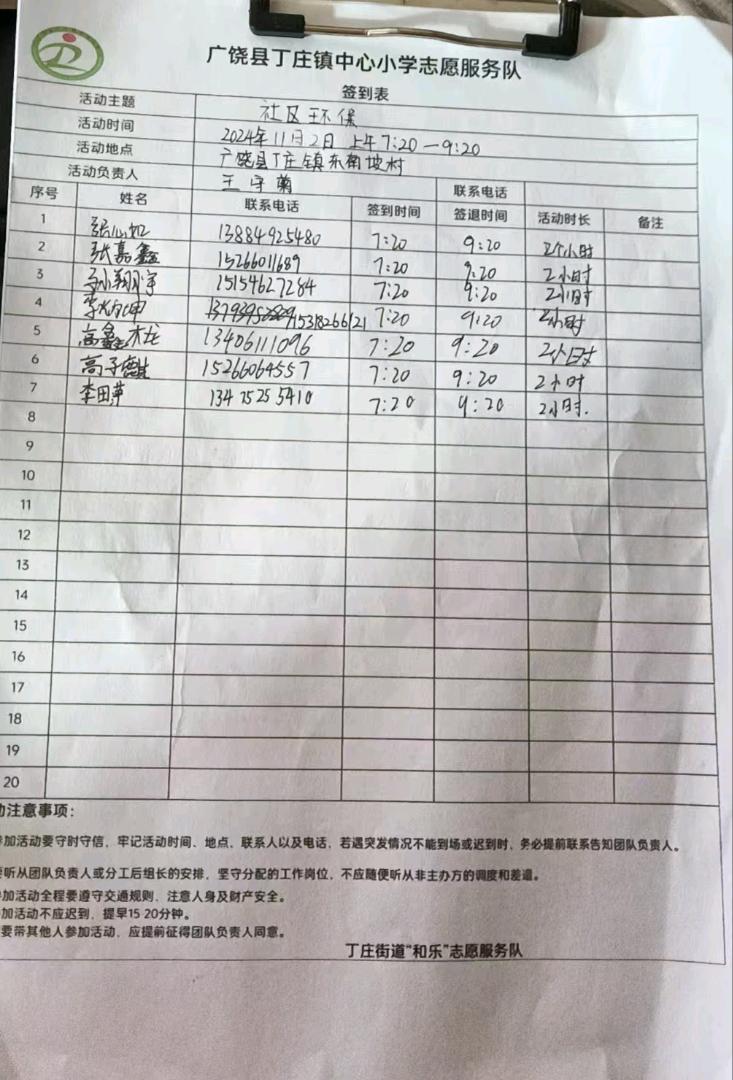 广饶县丁庄镇中心小学志愿服务队
签到表
活动主题 社区环保
活动时间 2024年11月2日 上午7:20—9:20
活动地点 广饶县丁庄镇东南坡村
活动负责人 王守菊 联系电话
序号 姓名 联系电话 签到时间 签退时间 活动时长 备注
1 张心如 13884925480 7:20 9:20 2个小时
2 张嘉鑫 15266011689 7:20 9:20 2小时
3 15154627284 7:20 9:20 2小时
4 15318266121 7:20 9:20 2小时
5 高鑫 13406111096 7:20 9:20 2个小时
6 高子 15266064557 7:20 9:20 2小时
7 李田苹 13475255410 7:20 9:20 2小时.
8
9
10
11
12
13
14
15
16
17
18
19
20
动注意事项：
参加活动要守时守信，牢记活动时间、地点、联系人以及电话，若遇突发情况不能到场或迟到时，务必提前联系告知团队负责人。
要听从团队负责人或分工后组长的安排，坚守分配的工作岗位，不应随便听从非主办方的调度和差遣。
参加活动全程要遵守交通规则，注意人身及财产安全。
加活动不应迟到，提早15 20分钟。
要带其他人参加活动，应提前征得团队负责人同意。
丁庄街道“和乐”志愿服务队